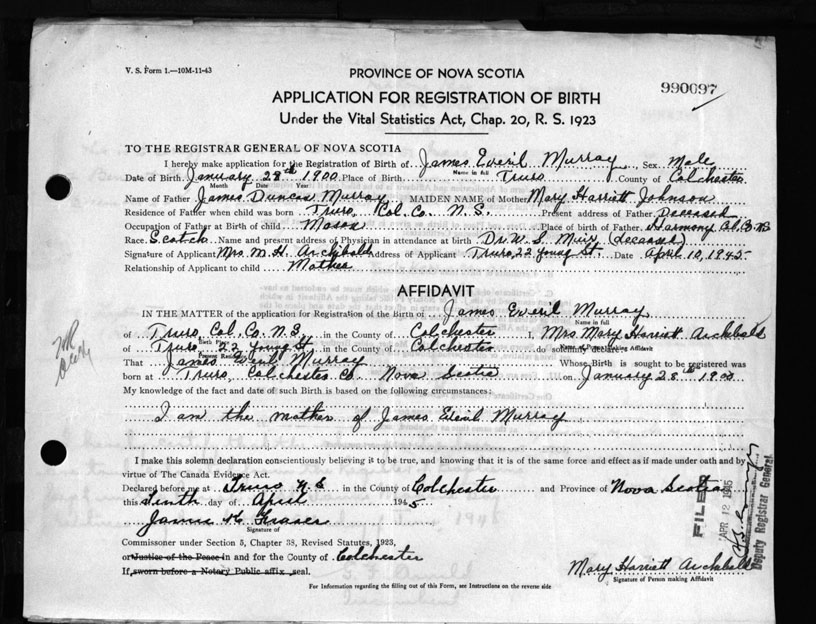 V. S. Form 1.—10M-11-43
PROVINCE OF NOVA SCOTIA
990097
APPLICATION FOR REGISTRATION OF BIRTH
Under the Vital Statistics Act, Chap. 20, R. S. 1923
TO THE REGISTRAR GENERAL OF NOVA SCOTIA
I hereby make application for the Registration of Birth of James Everil Murray Sex Male
Name in full
Date of Birth January 28th 1900 Place of Birth Truro County of Colchester
Month Date Year
Name of Father James Duncan Murray MAIDEN NAME of Mother Mary Harriett Johnson
Residence of Father when child was born Truro, Col. Co. N. S. Present address of Father Deceased
Occupation of Father at Birth of child Mason Place of Birth of Father Harmony Col. Co. N S
Race Scotch Name and present address of Physician in attendance at birth Dr. W. S. Muir (deceased)
Signature of Applicant Mrs. M. H. Archibald Address of Applicant Truro, 22 Young St. Date April 10, 1945
Relationship of Applicant to child Mother
AFFIDAVIT
IN THE MATTER of the application for Registration of the Birth of James Everil Murray
Name in full
of Truro Col. Co. N. S. in the County of Colchester I, Mrs Mary Harriett Archibald
Birth Place Name of Person Making Affidavit
of Truro 22 Young St in the County of Colchester do solemnly declare:
Present Residence
That James Everil Murray Whose Birth is sought to be registered was
born at Truro, Colchester Co. Nova Scotia on January 28th 1900
My knowledge of the fact and date of such Birth is based on the following circumstances:
I am the mother of James Everil Murray
I make this solemn declaration conscientiously believing it to be true, and knowing that it is of the same force and effect as if made under oath and by
virtue of The Canada Evidence Act.
Declared before me at Truro N S in the County of Colchester and Province of Nova Scotia
this Tenth day of April 1945
James H. Fraser
Signature of
Commissioner under Section 5, Chapter 38, Revised Statutes, 1923,
or Justice of the Peace in and for the County of Colchester
If sworn before a Notary Public affix seal.
Mary Harriett Archibald
Signature of Person making Affidavit
For Information regarding the filling out of this Form, see Instructions on the reverse side
FILED
APR 12 1945
Deputy Registrar General